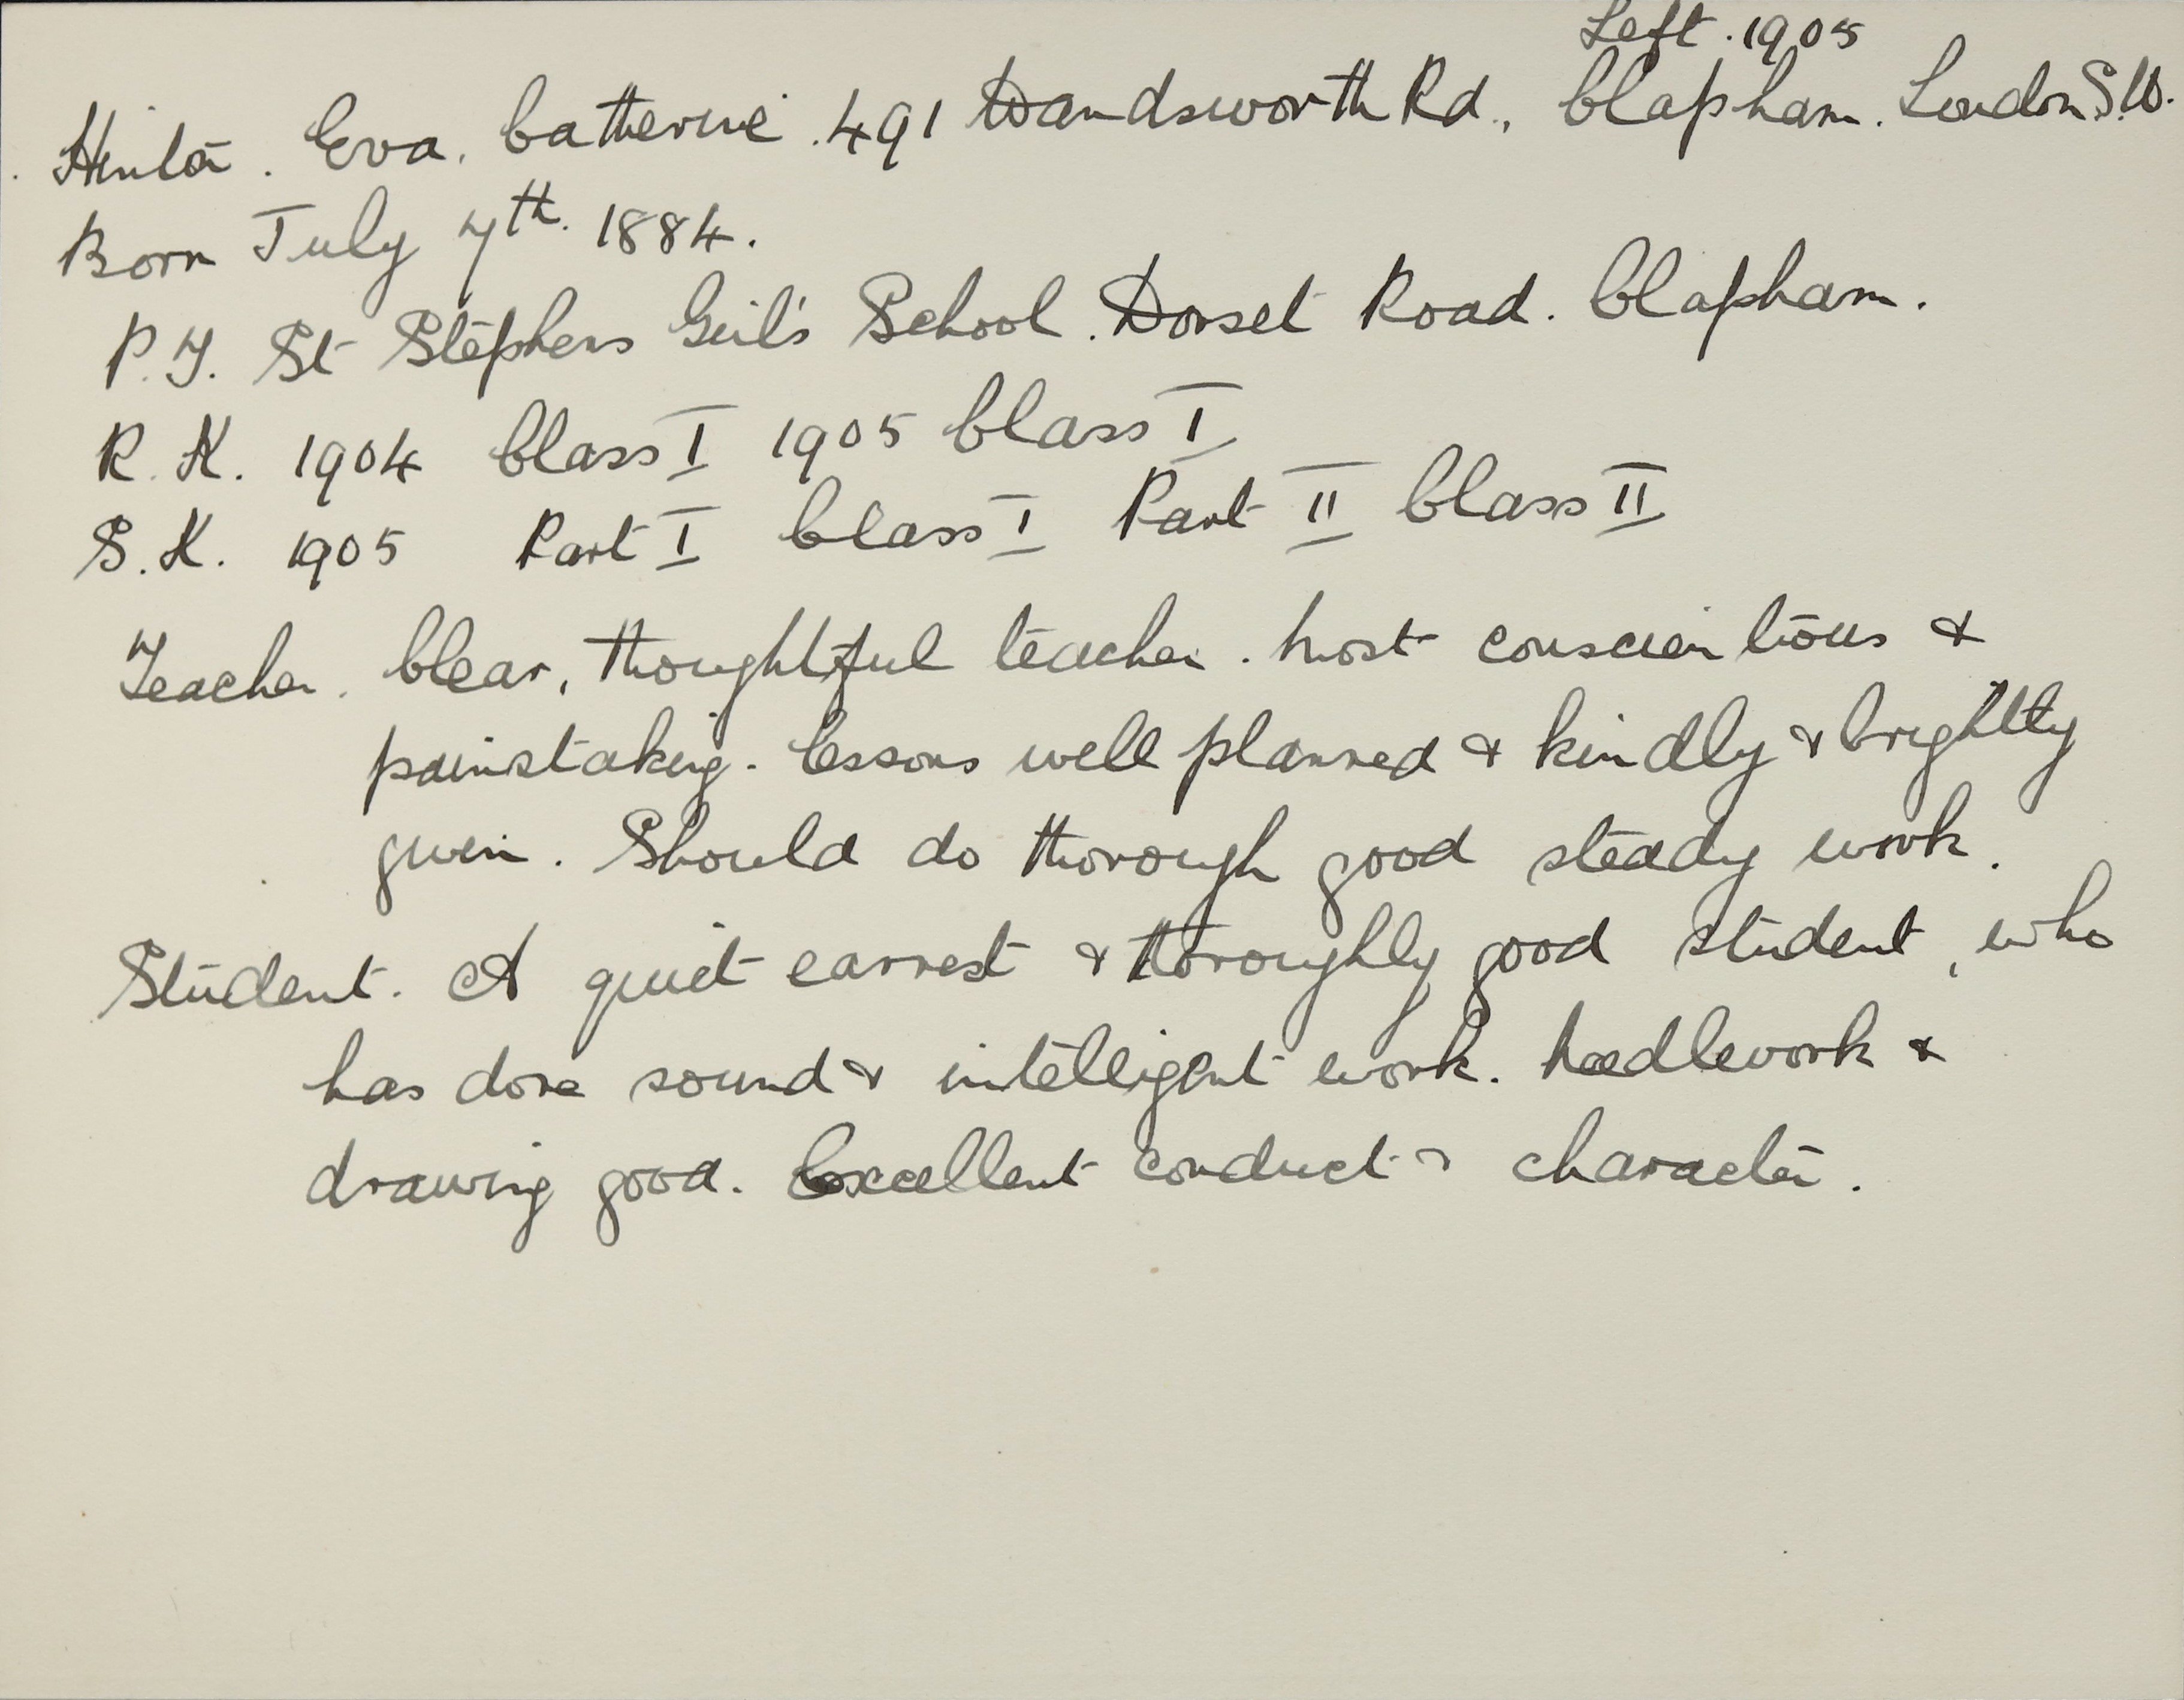 Left. 1905
Hinton. Eva. Catherine. 491 Wandsworth Rd., Clapham. London S.W.
Born July 7th. 1884.
P.T. St Stephens Girl's School. Dorset Road. Clapham.
R.K. 1904 Class I 1905 Class I
S.K. 1905 Part I Class I Part II Class II
Teacher. Clear, thoughtful teacher. Most conscientious &
painstaking. Lessons well planned & kindly & brightly
given. Should do thorough good steady work.
Student. A quiet earnest & thoroughly good student, who
has done sound & intelligent work. Needlework &
drawing good. Excellent conduct & character.